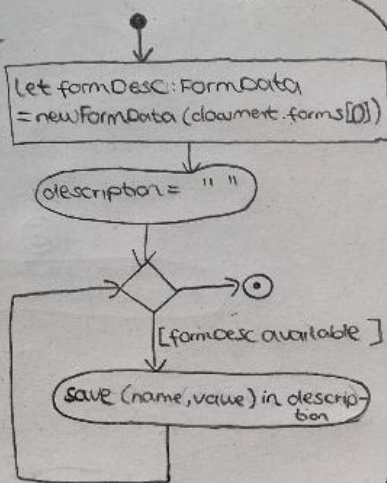 let formDesc: FormData
= new FormData (document.forms[0])
description = " "
[formDesc available]
save (name, value) in descrip-
tion